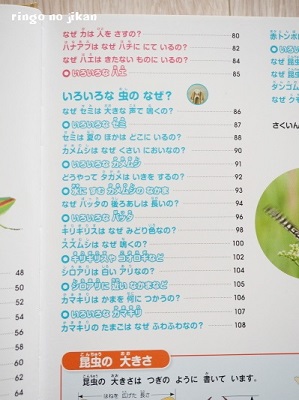 ringo no jikan
なぜ カは 人を さすの? 80
ハナアブは なぜ ハチに にて いるの? 82
なぜ ハエは きたない ものに いるの? 84
●いろいろな ハエ 85
いろいろな 虫の なぜ?
なぜ セミは 大きな 声で 鳴くの? 86
●いろいろな セミ 87
セミは 夏の ほかは どこに いるの? 88
カメムシは なぜ くさい においなの? 90
●いろいろな カメムシ 91
どうやって タガメは いきを するの? 92
●水に すむ カメムシの なかま 93
なぜ バッタの 後ろあしは 長いの? 94
●いろいろな バッタ 96
キリギリスは なぜ みどり色なの? 98
スズムシは なぜ 鳴くの? 100
●キリギリスや コオロギなど 102
シロアリは 白い アリなの? 104
●シロアリに 近い なかまなど 106
カマキリは かまを 何に つかうの? 106
●いろいろな カマキリ 107
カマキリの たまごは なぜ ふわふわなの? 108
赤トンボ
なぜ 昆虫
なぜ 昆虫
タンゴム
なぜ クモ
さくいん
48
50
52
54
56
58
60
61
62
昆虫の 大きさ
昆虫の 大きさは つぎの ように 書いて います。
はねを 広げた 長さ